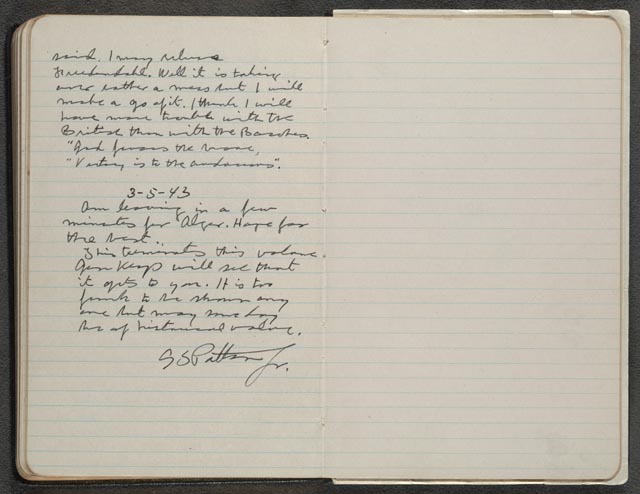 said. I may relieve
Freedendahl. Well it is taking
over rather a mess but I will
make a go of it. I think I will
have more trouble with the
British than with the Boches.
"God favors the brave,
"Victory is to the audacious".
3-5-43
Am leaving in a few
minutes for Alger. Hope for
the best.
This terminates this volume.
Gen Keyes will see that
it gets to you. It is too
frank to be shown any
one but may some day
be of historical value.
G S Patton Jr.